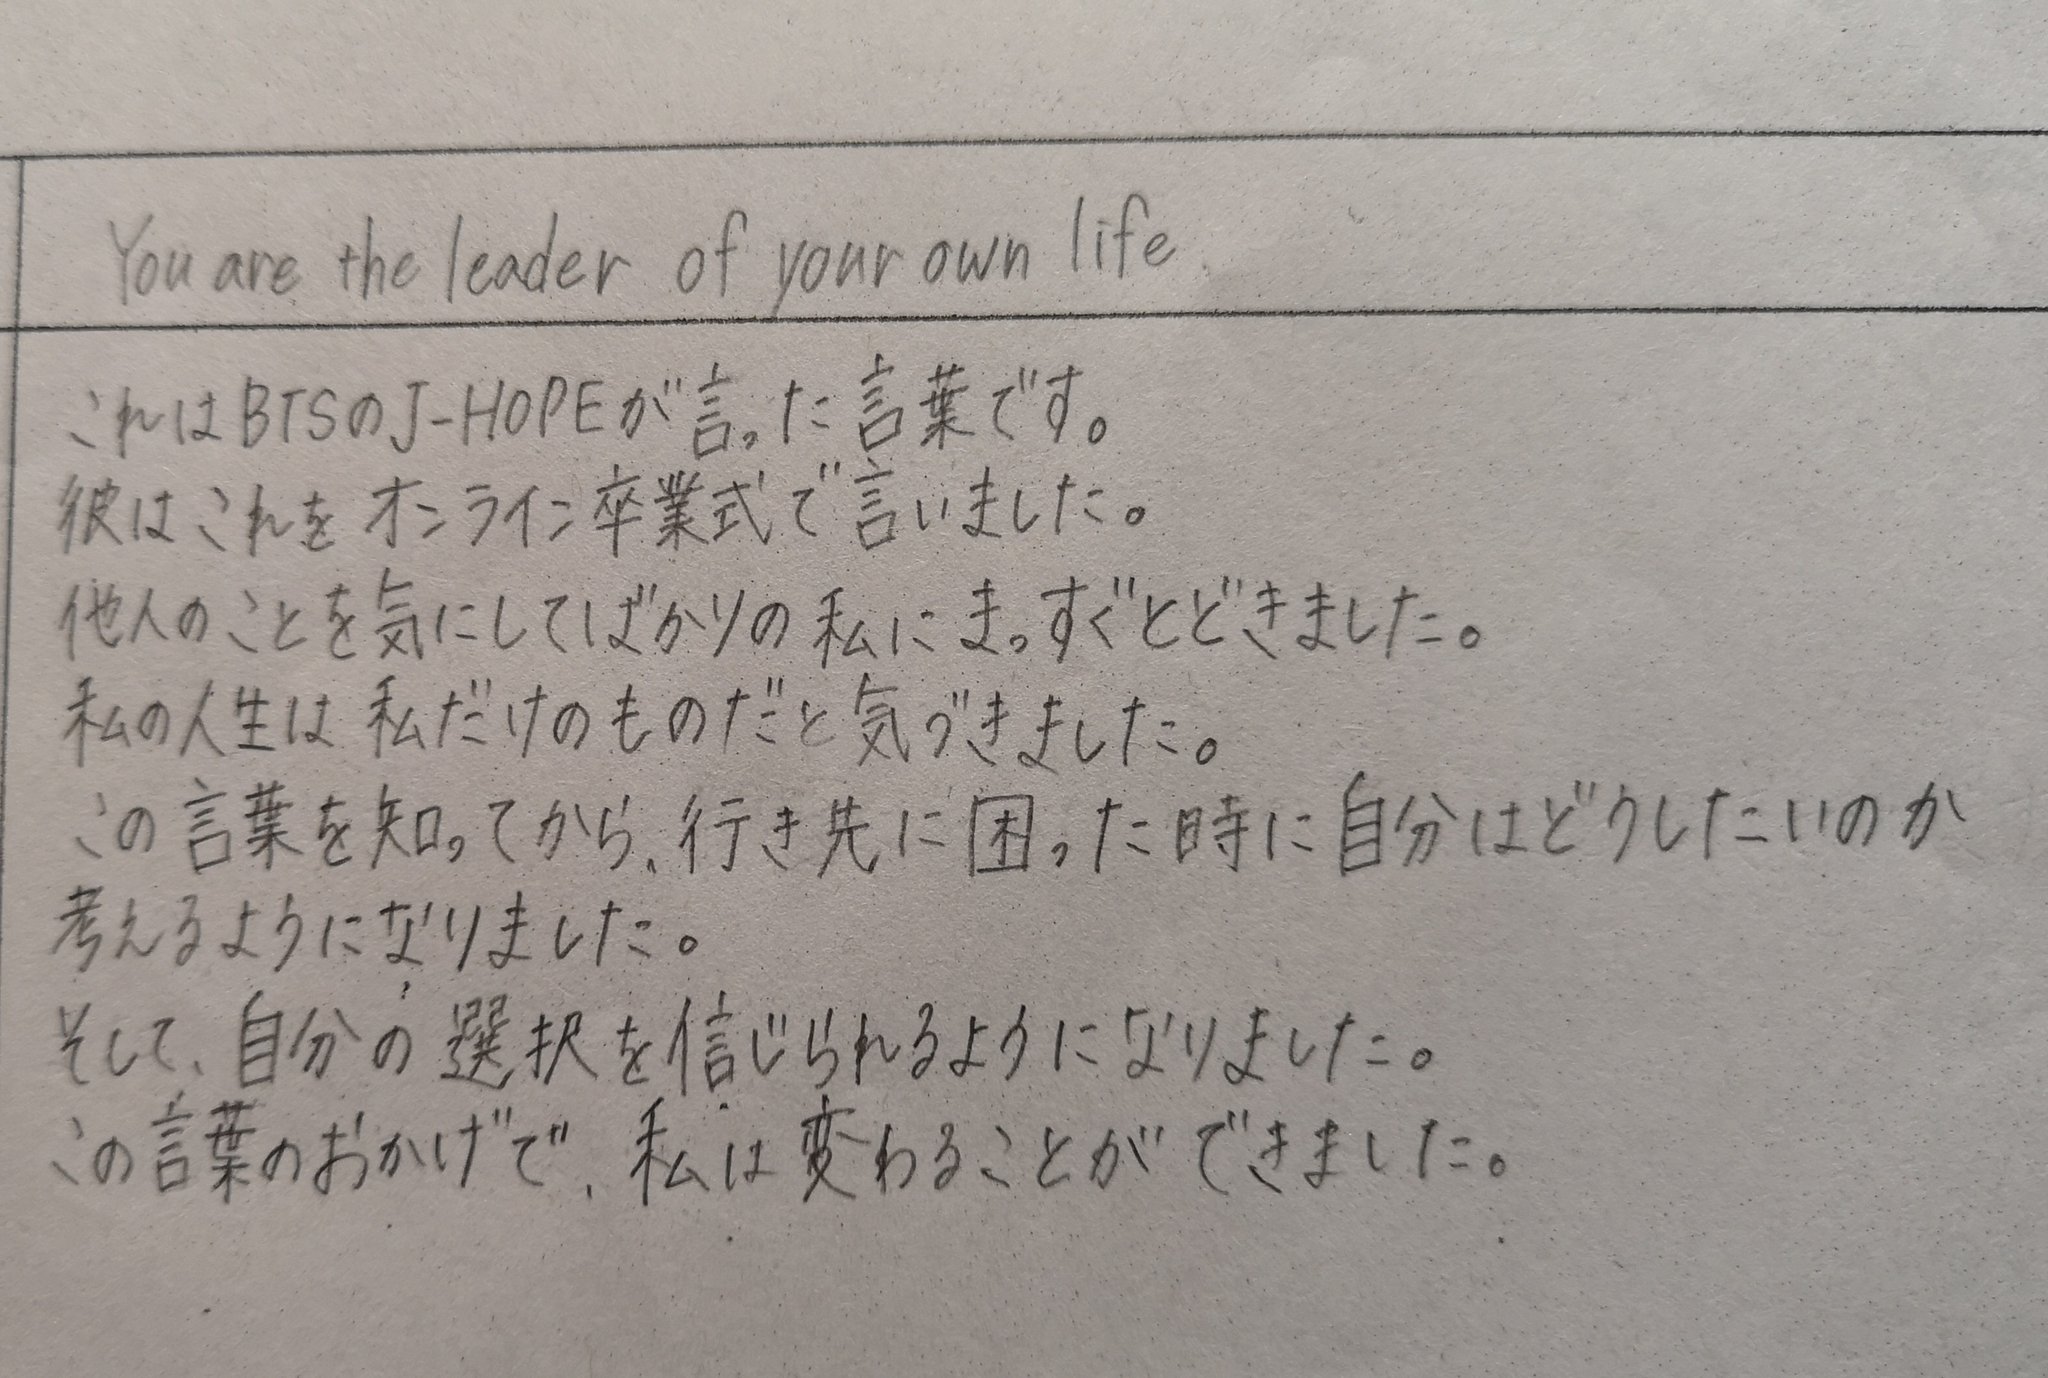 You are the leader of your own life.
これはBTSのJ-HOPEが言った言葉です。
彼はこれをオンライン卒業式で言いました。
他人のことを気にしてばかりの私にまっすぐとどきました。
私の人生は私だけのものだと気づきました。
この言葉を知ってから、行き先に困った時に自分はどうしたいのか
考えるようになりました。
そして、自分の選択を信じられるようになりました。
この言葉のおかげで、私は変わることができました。